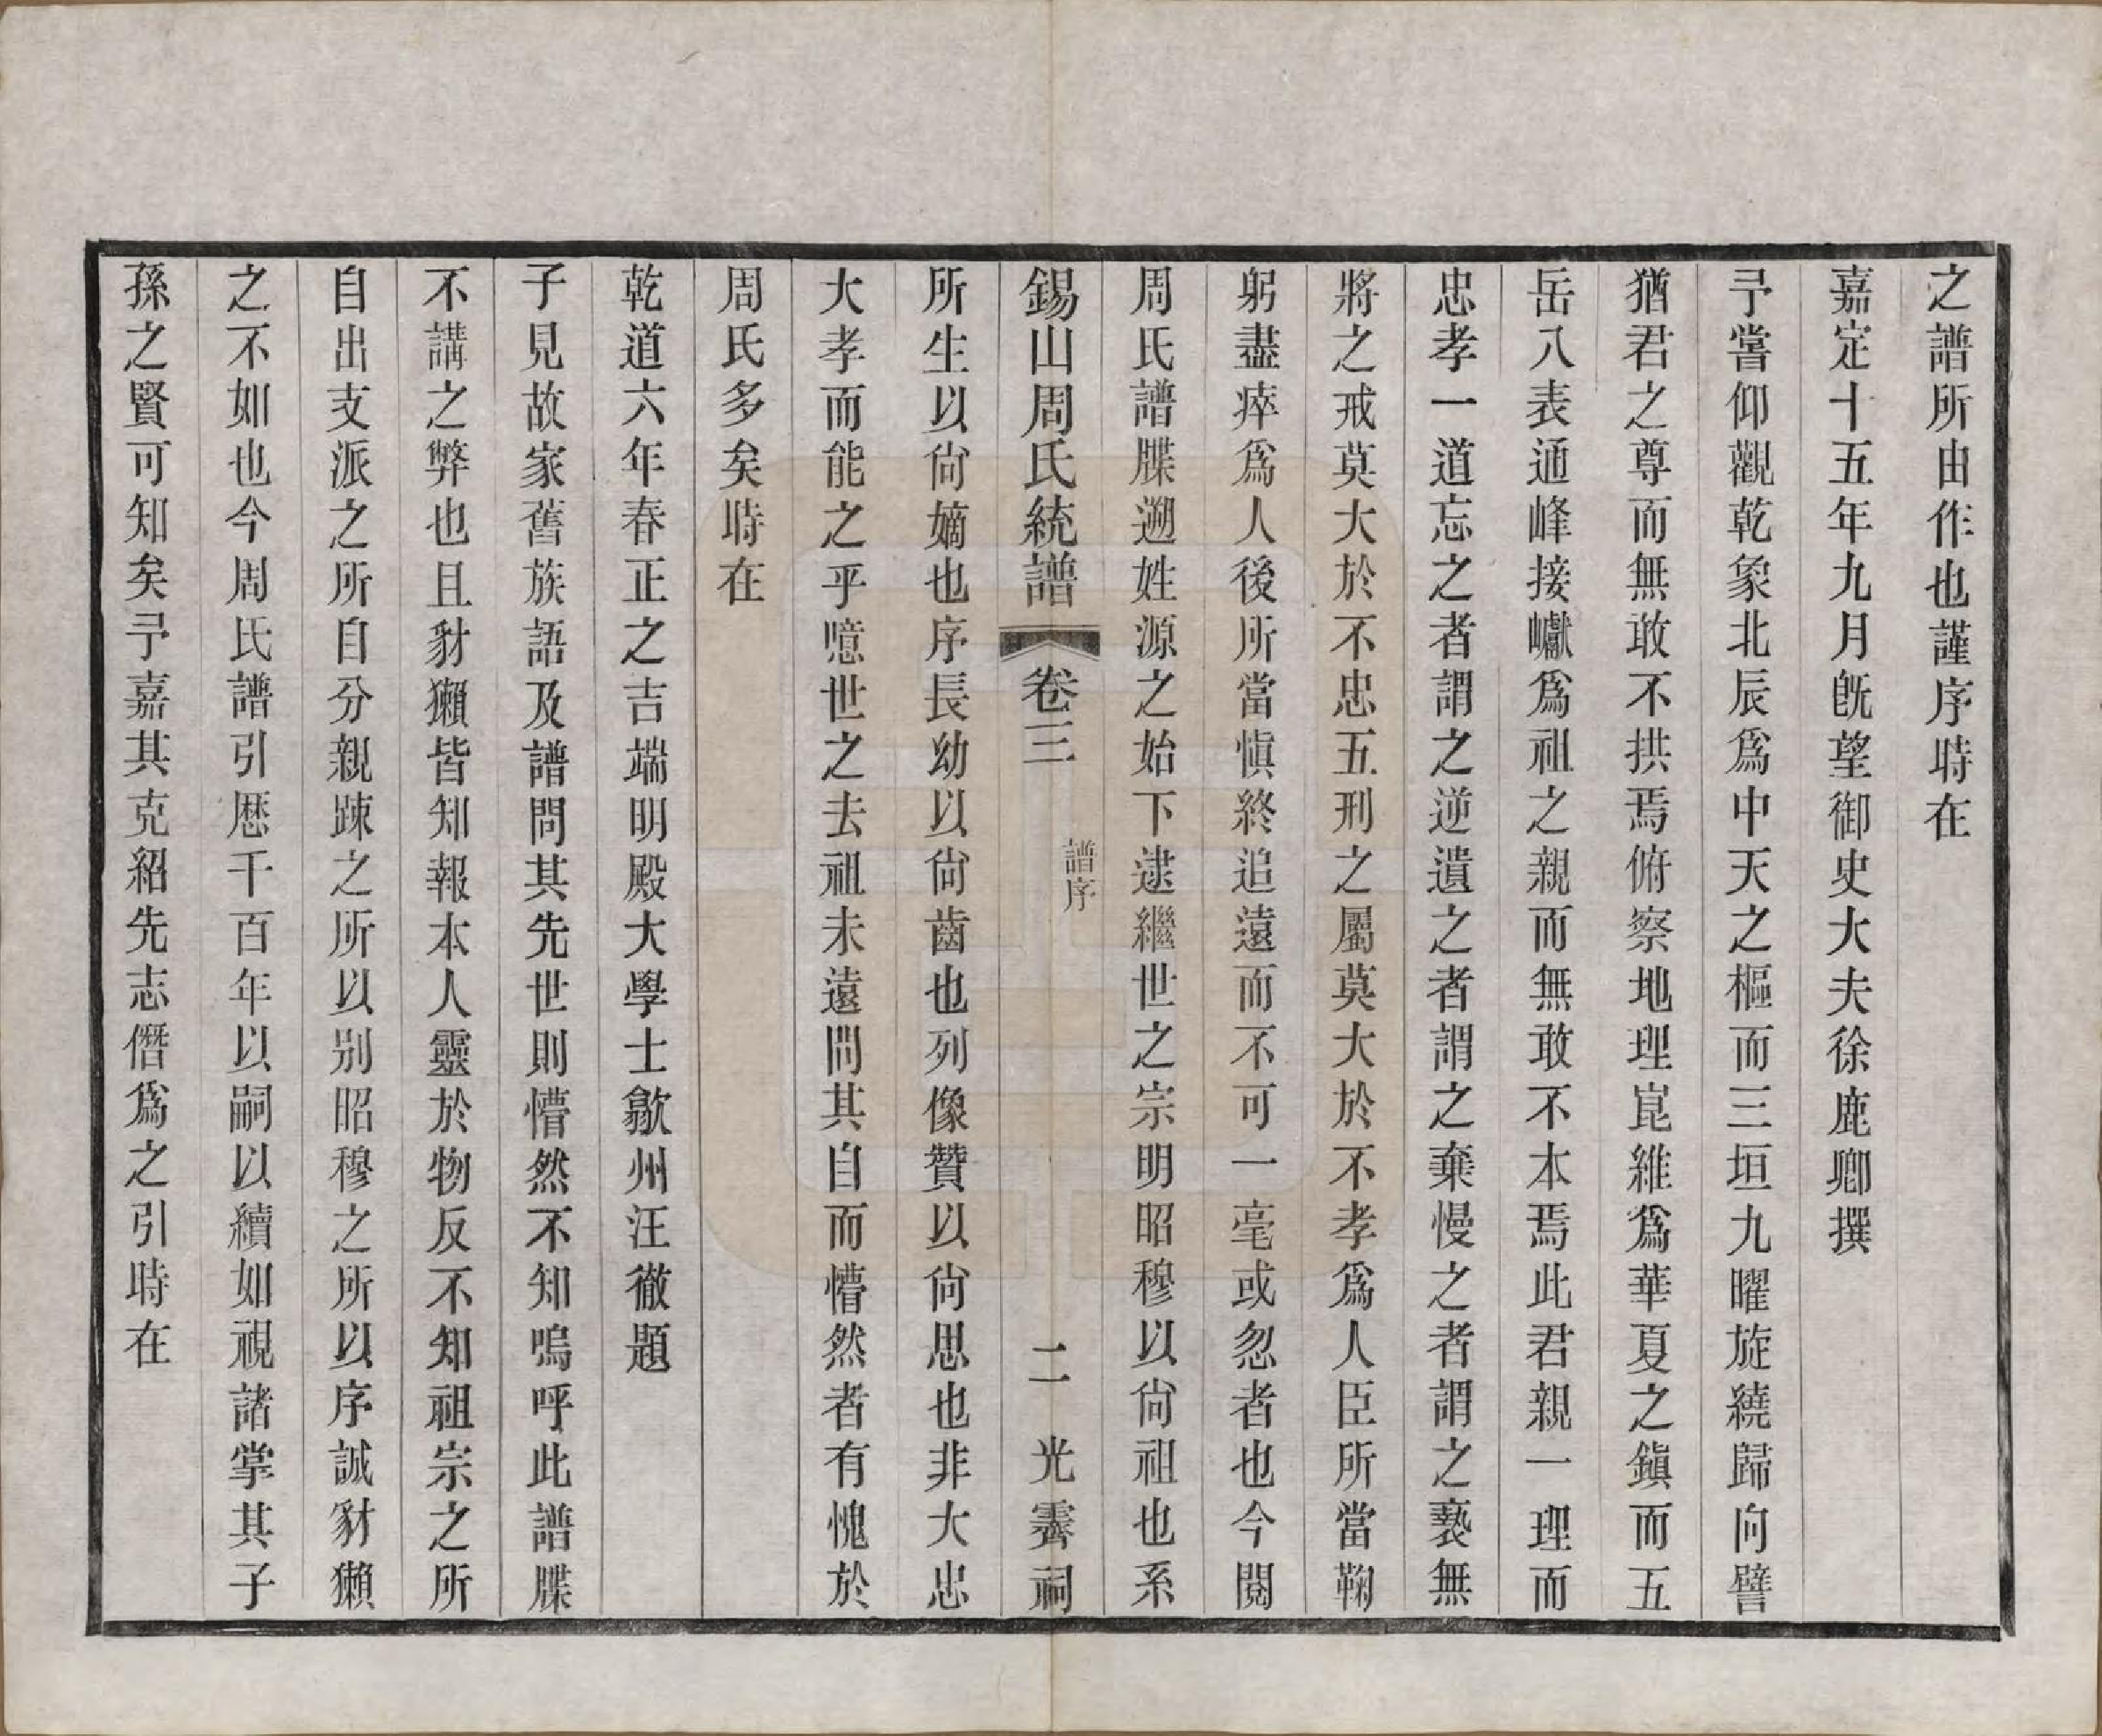 之譜所由作也謹序時在
嘉定十五年九月旣望御史大夫徐鹿卿撰
予嘗仰觀乾象北辰爲中天之樞而三垣九曜旋繞歸向譬
猶君之尊而無敢不拱焉俯察地理崑維爲華夏之鎭而五
岳八表通峰接巘爲祖之親而無敢不本焉此君親一理而
忠孝一道忘之者謂之逆遺之者謂之棄慢之者謂之褻無
將之戒莫大於不忠五刑之屬莫大於不孝爲人臣所當鞠
躬盡瘁爲人後所當愼終追遠而不可一毫或忽者也今閱
周氏譜牒遡姓源之始下逮繼世之宗明昭穆以尙祖也系
錫山周氏統譜 卷三 譜序 二 光霽祠
所生以尙嫡也序長幼以尙齒也列像贊以尙思也非大忠
大孝而能之乎噫世之去祖未遠問其自而懵然者有愧於
周氏多矣時在
乾道六年春正之吉端明殿大學士歙州汪徹題
子見故家舊族語及譜問其先世則懵然不知嗚呼此譜牒
不講之弊也且豺獺皆知報本人靈於物反不知祖宗之所
自出支派之所自分親踈之所以别昭穆之所以序誠豺獺
之不如也今周氏譜引歷千百年以嗣以續如視諸掌其子
孫之賢可知矣予嘉其克紹先志僭爲之引時在